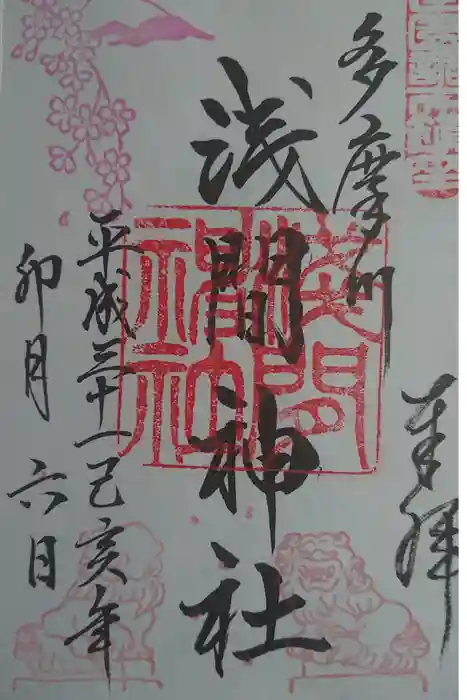 奉拝
多摩川
浅間神社
浅間神社
平成三十一己亥年
卯月 六日